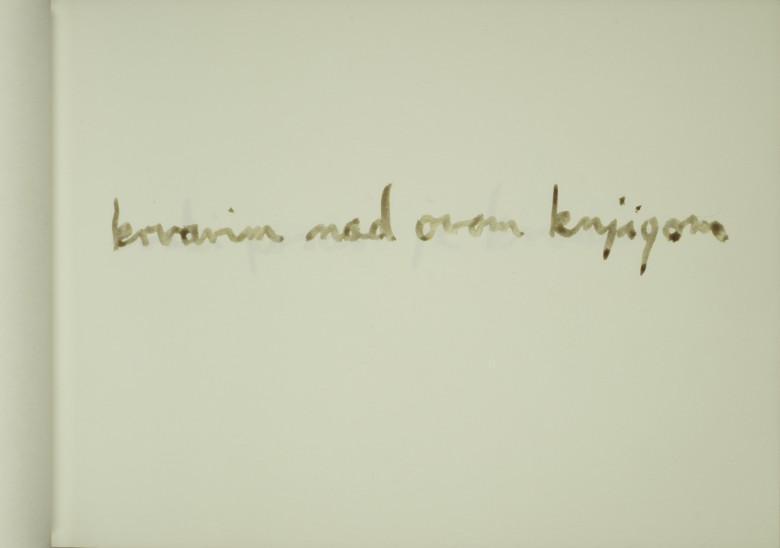 krvavim nad ovom knjigom